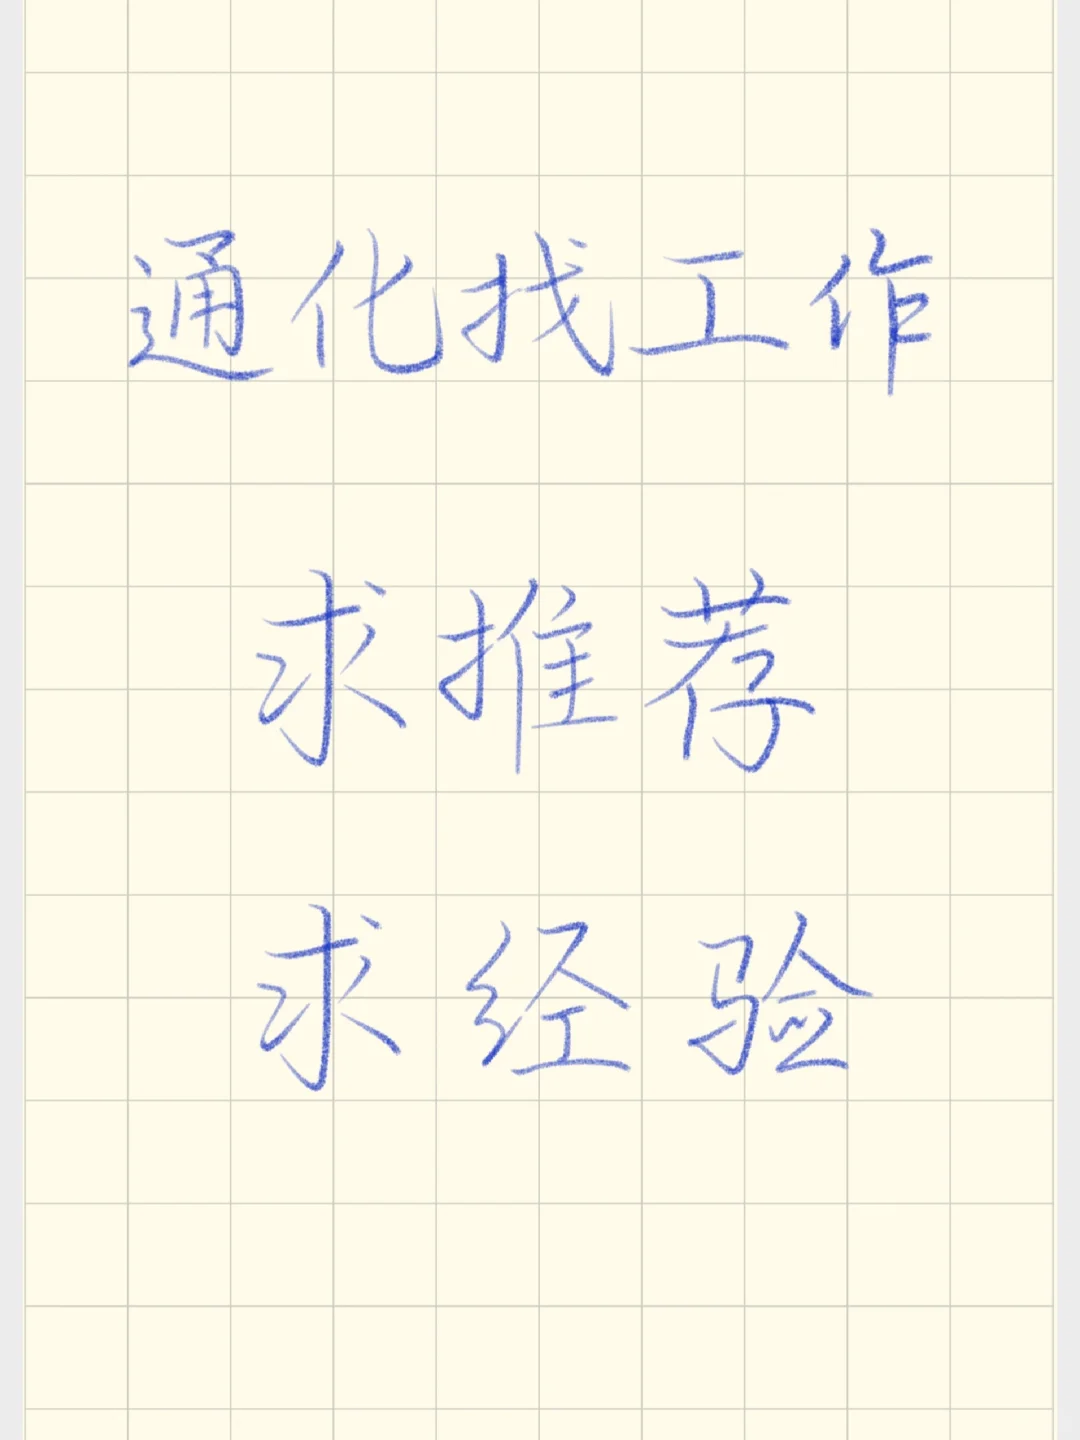 通化找工作
求推荐
求经验